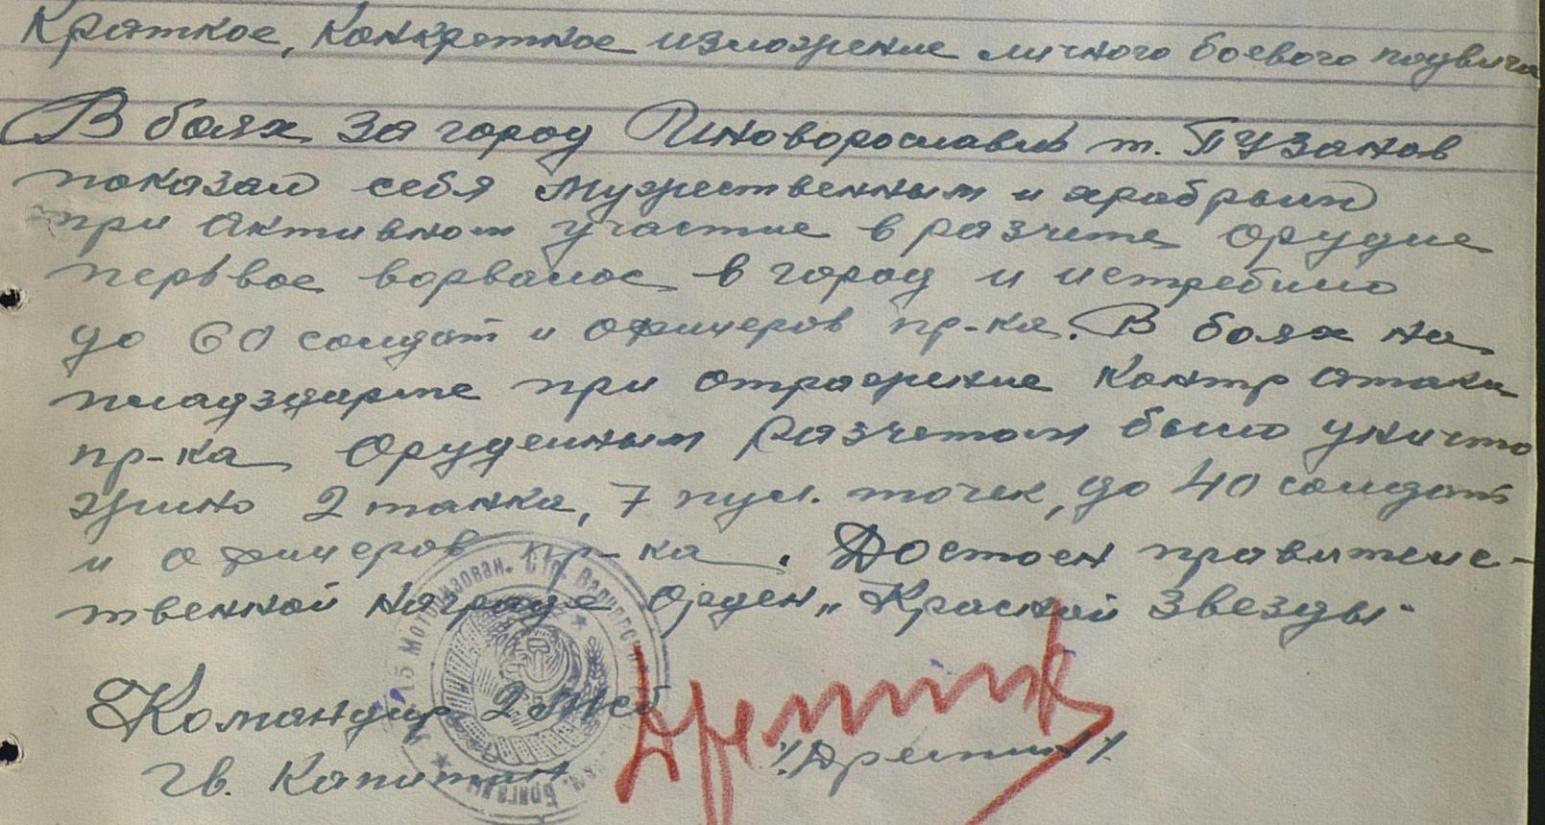 Краткое, конкретное изложение личного боевого подвига
В боях за город Иноворославль т. Пузанов
показал себя мужественным и храбрым
при активном участие в разчете орудие
перьвое ворвалос в город и истребило
до 60 солдат и офицеров пр-ка. В боях на
пладздарме при отражение контр атаки
пр-ка Орудейным разчетом было уничто
жино 2 танка, 7 пул. точек, до 40 солдат
и офицеров пр-ка. Достоен правителс-
твенной награде орден „Красной Звезды"
Командир 2 мсб
Гв. Капитан
15 Моторизован. Стр.
Бригады